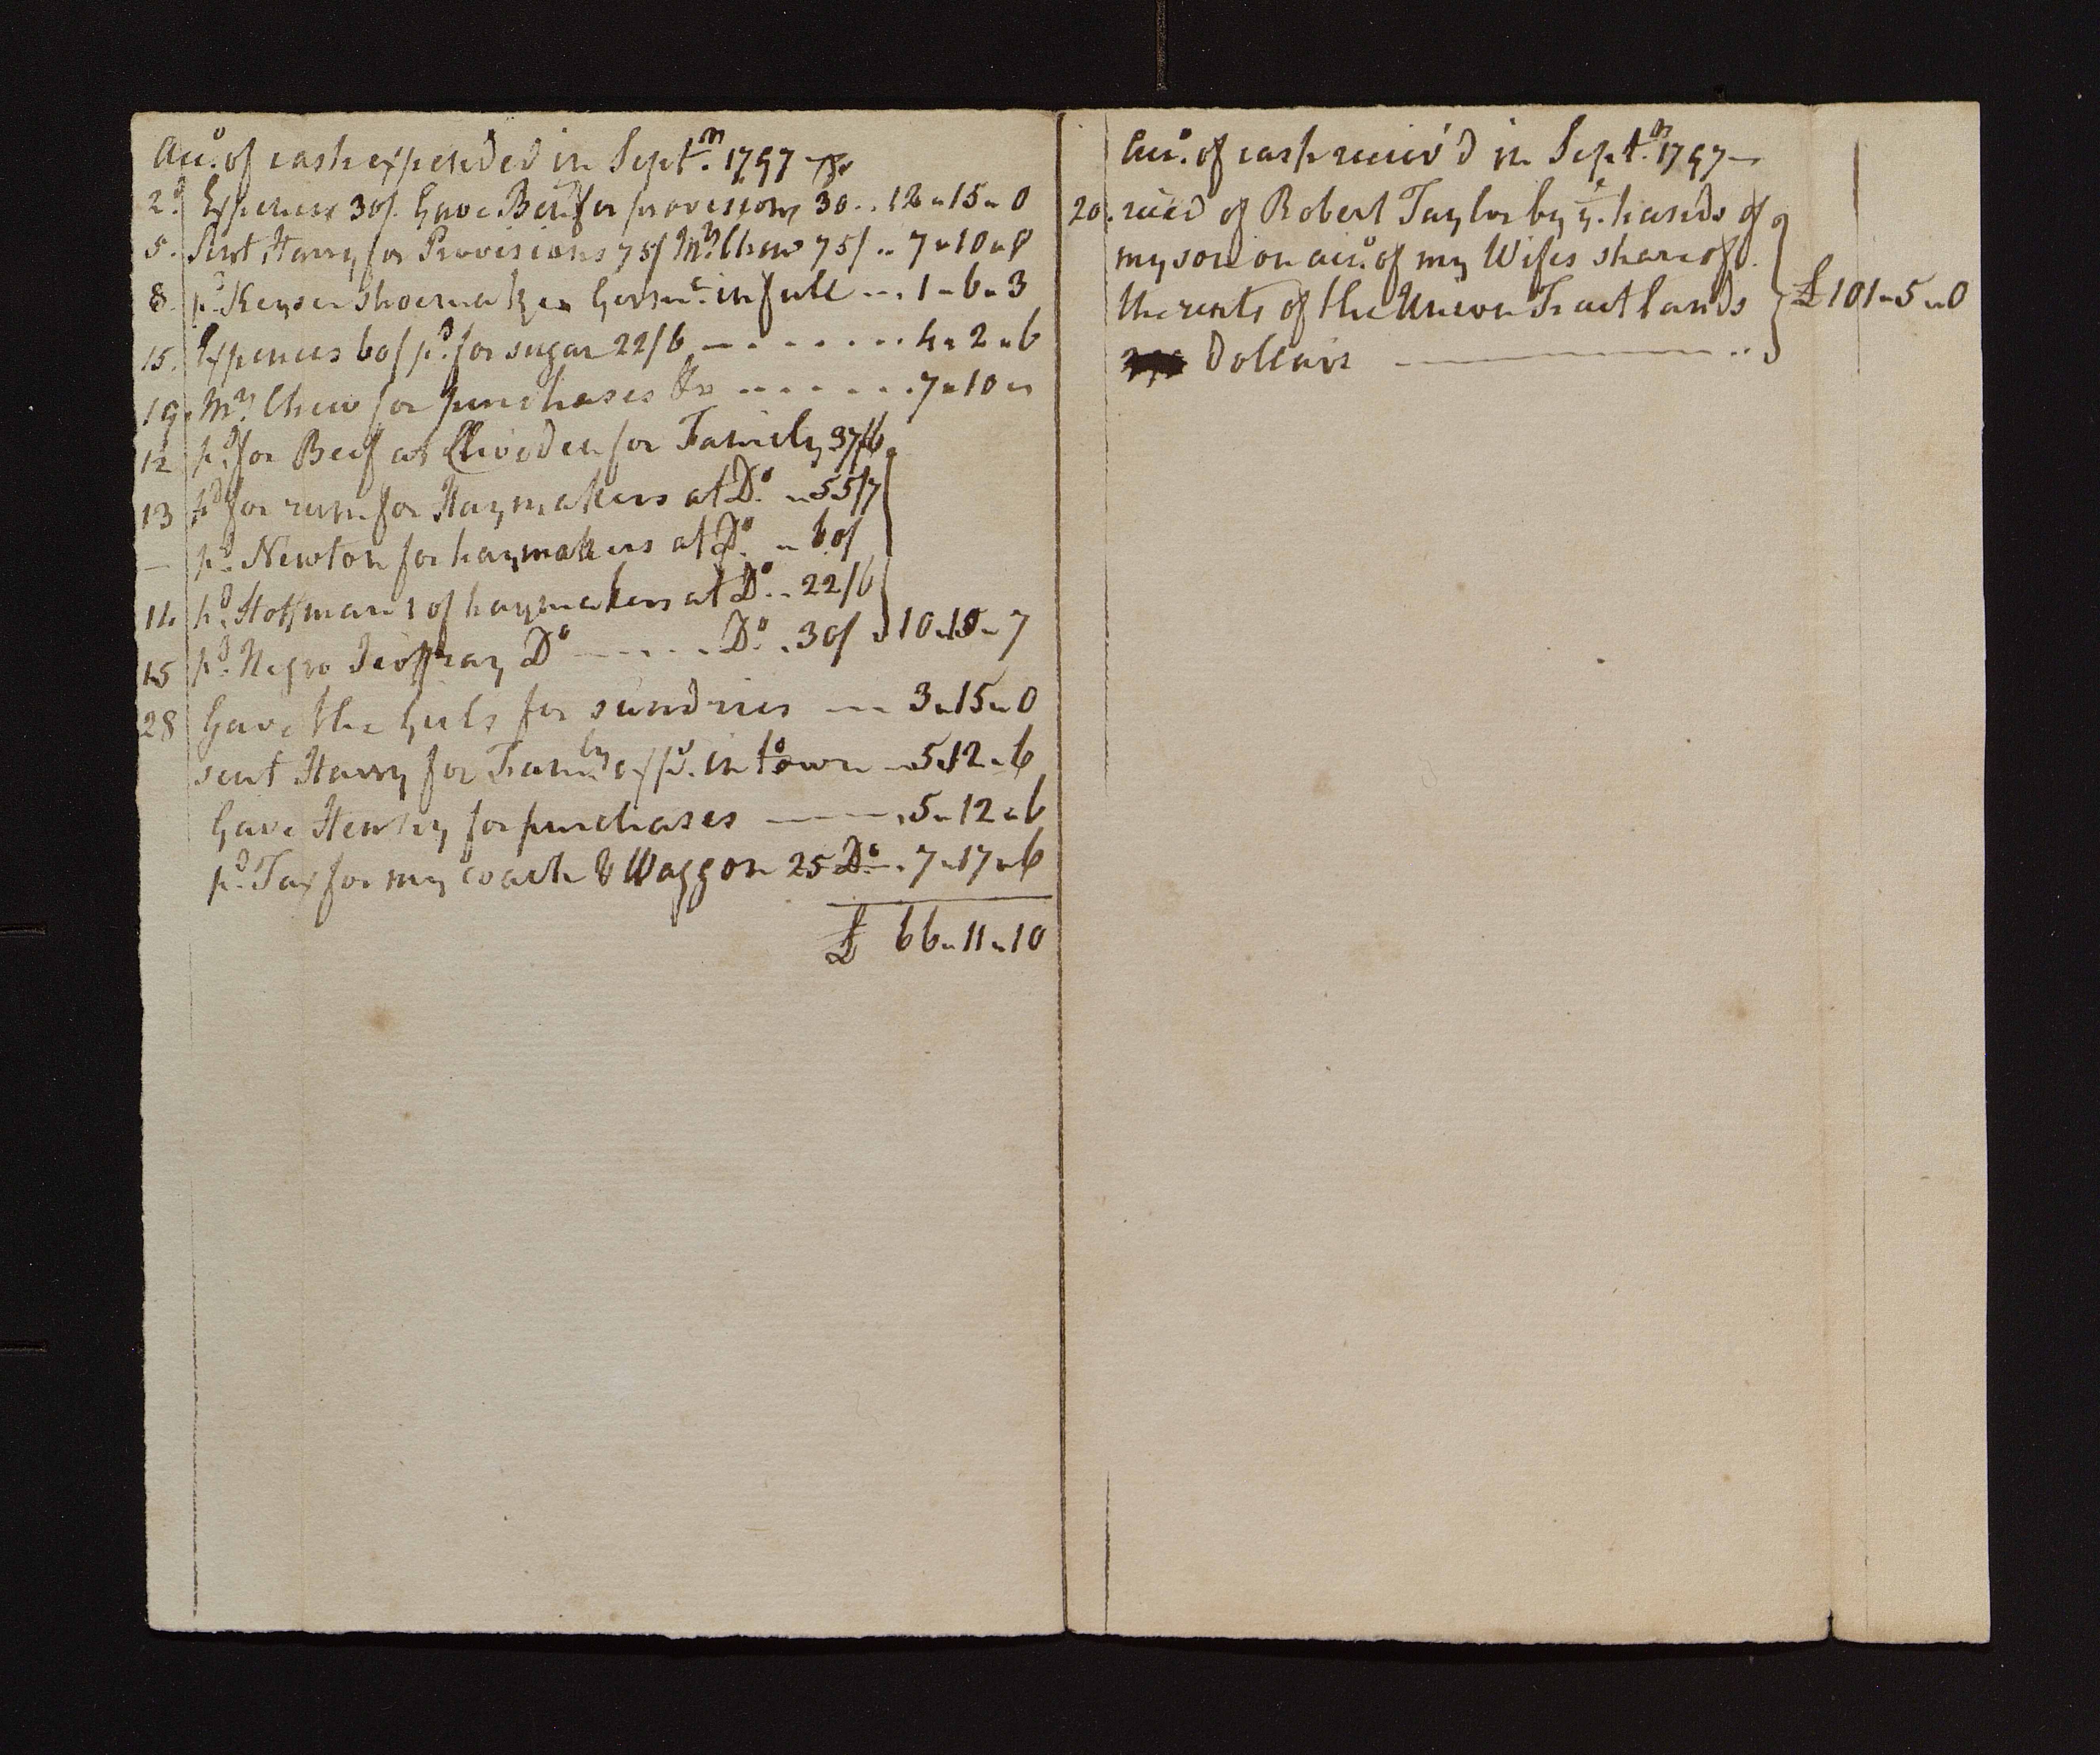 Acco. of cash expended in Septr. 1797 —
2d Expences 30/. Gave Benj for provisions 30 .. 12 " 15 " 0
5. Sent Harry for Provisions 75/ Mrs. Chew 75/ .. 7 " 10 " 0
8. pd. Keyser shoemaker Germn. in full ... 1 " 6 " 3
15. Expences 60/ pd. for sugar 22/6 — . . . . . . . 4 " 2 " 6
19. Mrs. Chew for purchases &c . . . . . . . 7 " 10 "
12 pd. for Beef at Cliveden for Family 37/6
13 pd for rum for Haymakers at Do. " 55/7
— pd. Newton for haymakers at Do. " 60/
14 pd. Hoffman 1 of haymakers at Do. .. 22/6
15 pd. Negro Jeoffray Do — . . . . Do. . 30/ 10 " 10 " 7
28 Gave the Girls for sundries — 3 " 15 " 0
sent Harry for Famly exps. in town — 5 " 12 " 6
Gave Henry for purchases — 5 " 12 " 6
pd. Tax for my coach & Waggon 25 Do. . 7 " 17 " 6
£ 66 " 11 " 10
Acco. of cash receiv'd in Septr. 1797 —
20. reced of Robert Taylor by ye. hands of
my son on acco. of my Wifes share of
the rents of the Union Tract lands £ 101 " 5 " 0
Dollars — ..